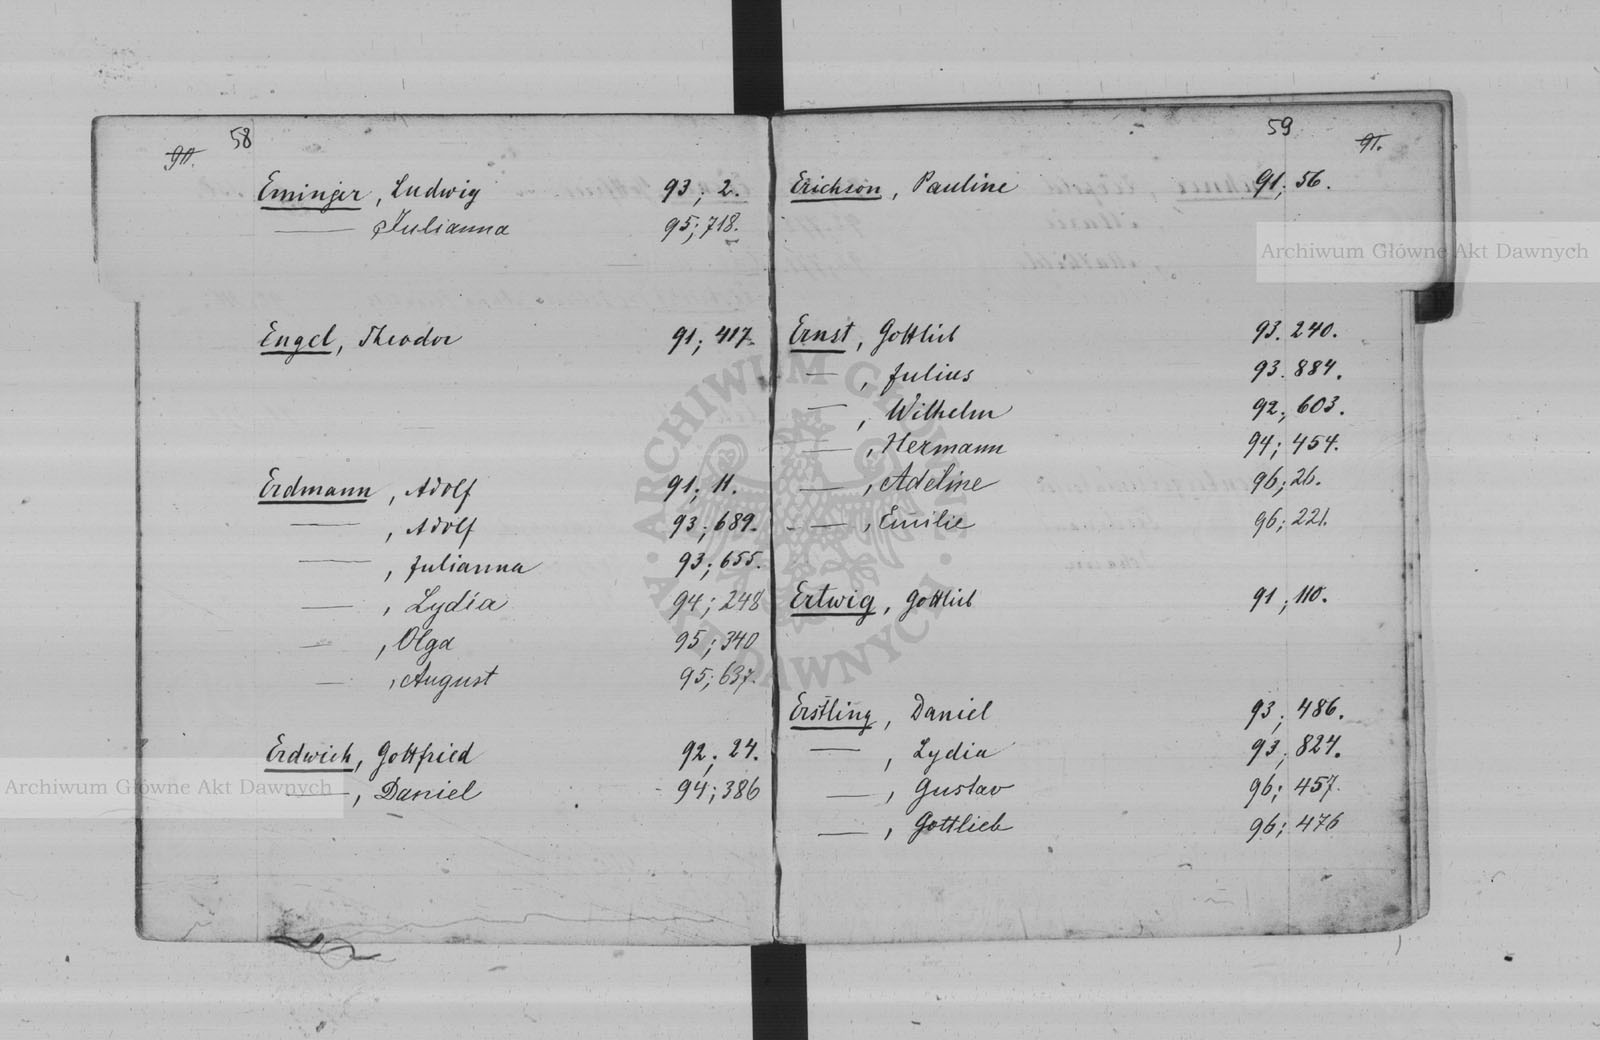 90. 58
Eminger, Ludwig 93; 2.
— Julianna 95; 718.
Engel, Theodor 91; 417.
Erdmann, Adolf 91; 11.
—, Adolf 93; 689.
—, Julianna 93; 655.
—, Lydia 94; 248
—, Olga 95; 340
—, August 95; 637.
Erdwich, Gottfried 92; 24.
—, Daniel 94; 386
59 91.
Erichson, Pauline 91; 56.
Ernst, Gottlieb 93. 240.
—, Julius 93. 884.
—, Wilhelm 92; 603.
—, Hermann 94; 454.
—, Adeline 96; 26.
—, Emilie 96; 221.
Ertwig, Gottlieb 91; 110.
Erstling, Daniel 93; 486.
—, Lydia 93; 824.
—, Gustav 96; 457.
—, Gottlieb 96; 476
Archiwum Główne Akt Dawnych
Archiwum Główne Akt Dawnych